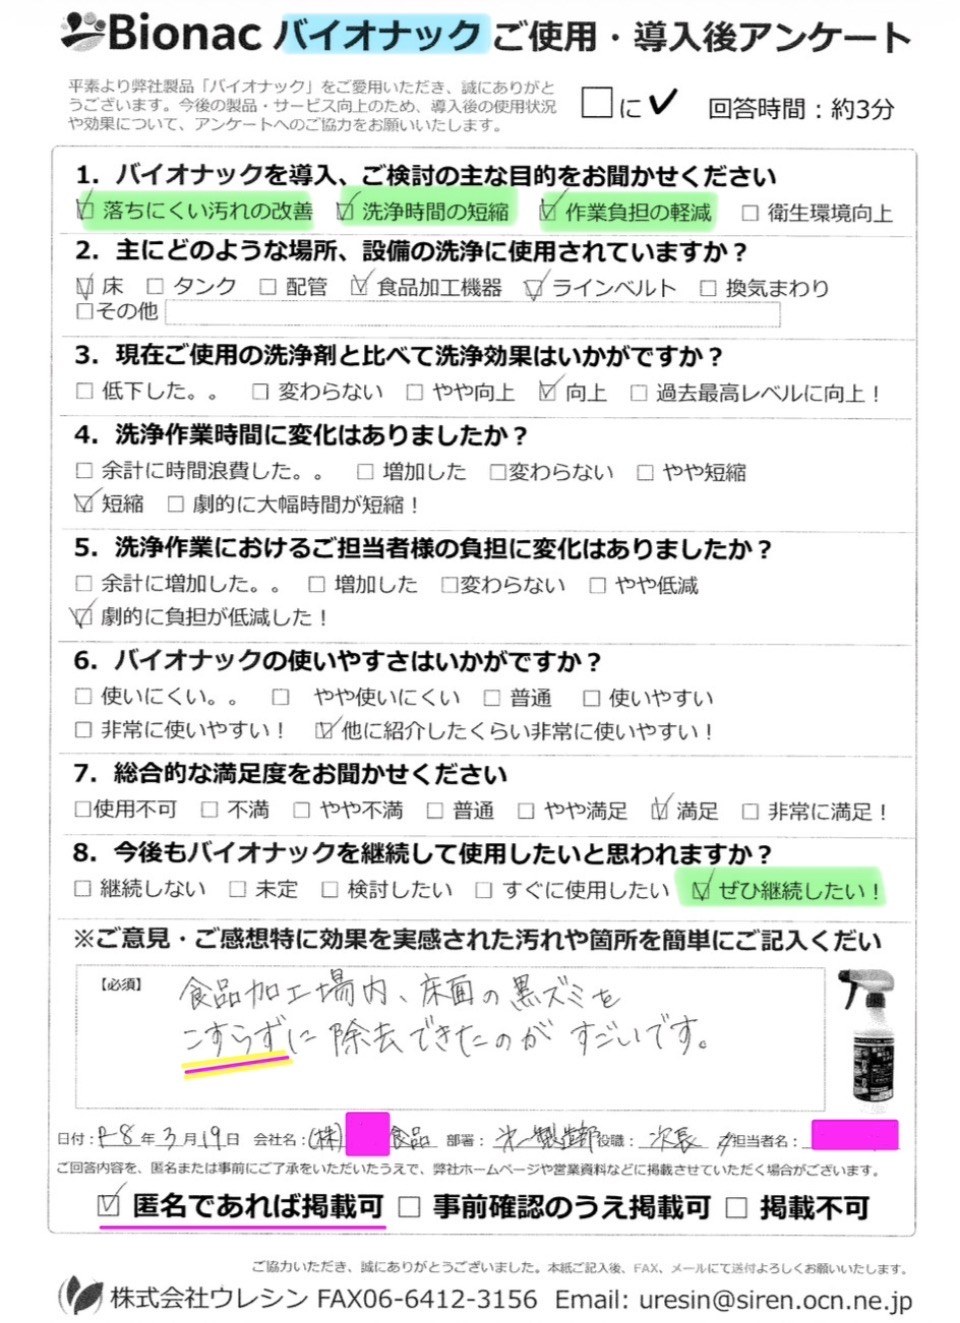 Bionac バイオナック ご使用・導入後アンケート
平素より弊社製品「バイオナック」をご愛用いただき、誠にありがと
うございます。今後の製品・サービス向上のため、導入後の使用状況
や効果について、アンケートへのご協力をお願いいたします。
□に✔ 回答時間：約3分
1．バイオナックを導入、ご検討の主な目的をお聞かせください
☑ 落ちにくい汚れの改善 ☑ 洗浄時間の短縮 ☑ 作業負担の軽減 □ 衛生環境向上
2．主にどのような場所、設備の洗浄に使用されていますか？
☑ 床 □ タンク □ 配管 ☑ 食品加工機器 ☑ ラインベルト □ 換気まわり
□その他
3．現在ご使用の洗浄剤と比べて洗浄効果はいかがですか？
□ 低下した。。 □ 変わらない □ やや向上 ☑ 向上 □ 過去最高レベルに向上！
4．洗浄作業時間に変化はありましたか？
□ 余計に時間浪費した。。 □ 増加した □変わらない □ やや短縮
☑ 短縮 □ 劇的に大幅時間が短縮！
5．洗浄作業におけるご担当者様の負担に変化はありましたか？
□ 余計に増加した。。 □ 増加した □変わらない □ やや低減
☑ 劇的に負担が低減した！
6．バイオナックの使いやすさはいかがですか？
□ 使いにくい。。 □ やや使いにくい □ 普通 □ 使いやすい
□ 非常に使いやすい！ ☑他に紹介したくらい非常に使いやすい！
7．総合的な満足度をお聞かせください
□使用不可 □ 不満 □ やや不満 □ 普通 □ やや満足 ☑ 満足 □ 非常に満足！
8．今後もバイオナックを継続して使用したいと思われますか？
□ 継続しない □ 未定 □ 検討したい □ すぐに使用したい ☑ ぜひ継続したい！
※ご意見・ご感想特に効果を実感された汚れや箇所を簡単にご記入くだい
【必須】
食品加工場内、床面の黒ズミを
こすらずに除去できたのがすごいです。
日付：R8年3月19日 会社名：(株) 食品 部署： 製造部 役職：次長 担当者名：
ご回答内容を、匿名または事前にご了承をいただいたうえで、弊社ホームページや営業資料などに掲載させていただく場合がございます。
☑ 匿名であれば掲載可 □ 事前確認のうえ掲載可 □ 掲載不可
ご協力いただき、誠にありがとうございました。本紙ご記入後、FAX、メールにて送付よろしくお願いいたします。
株式会社ウレシン FAX06-6412-3156 Email: uresin@siren.ocn.ne.jp